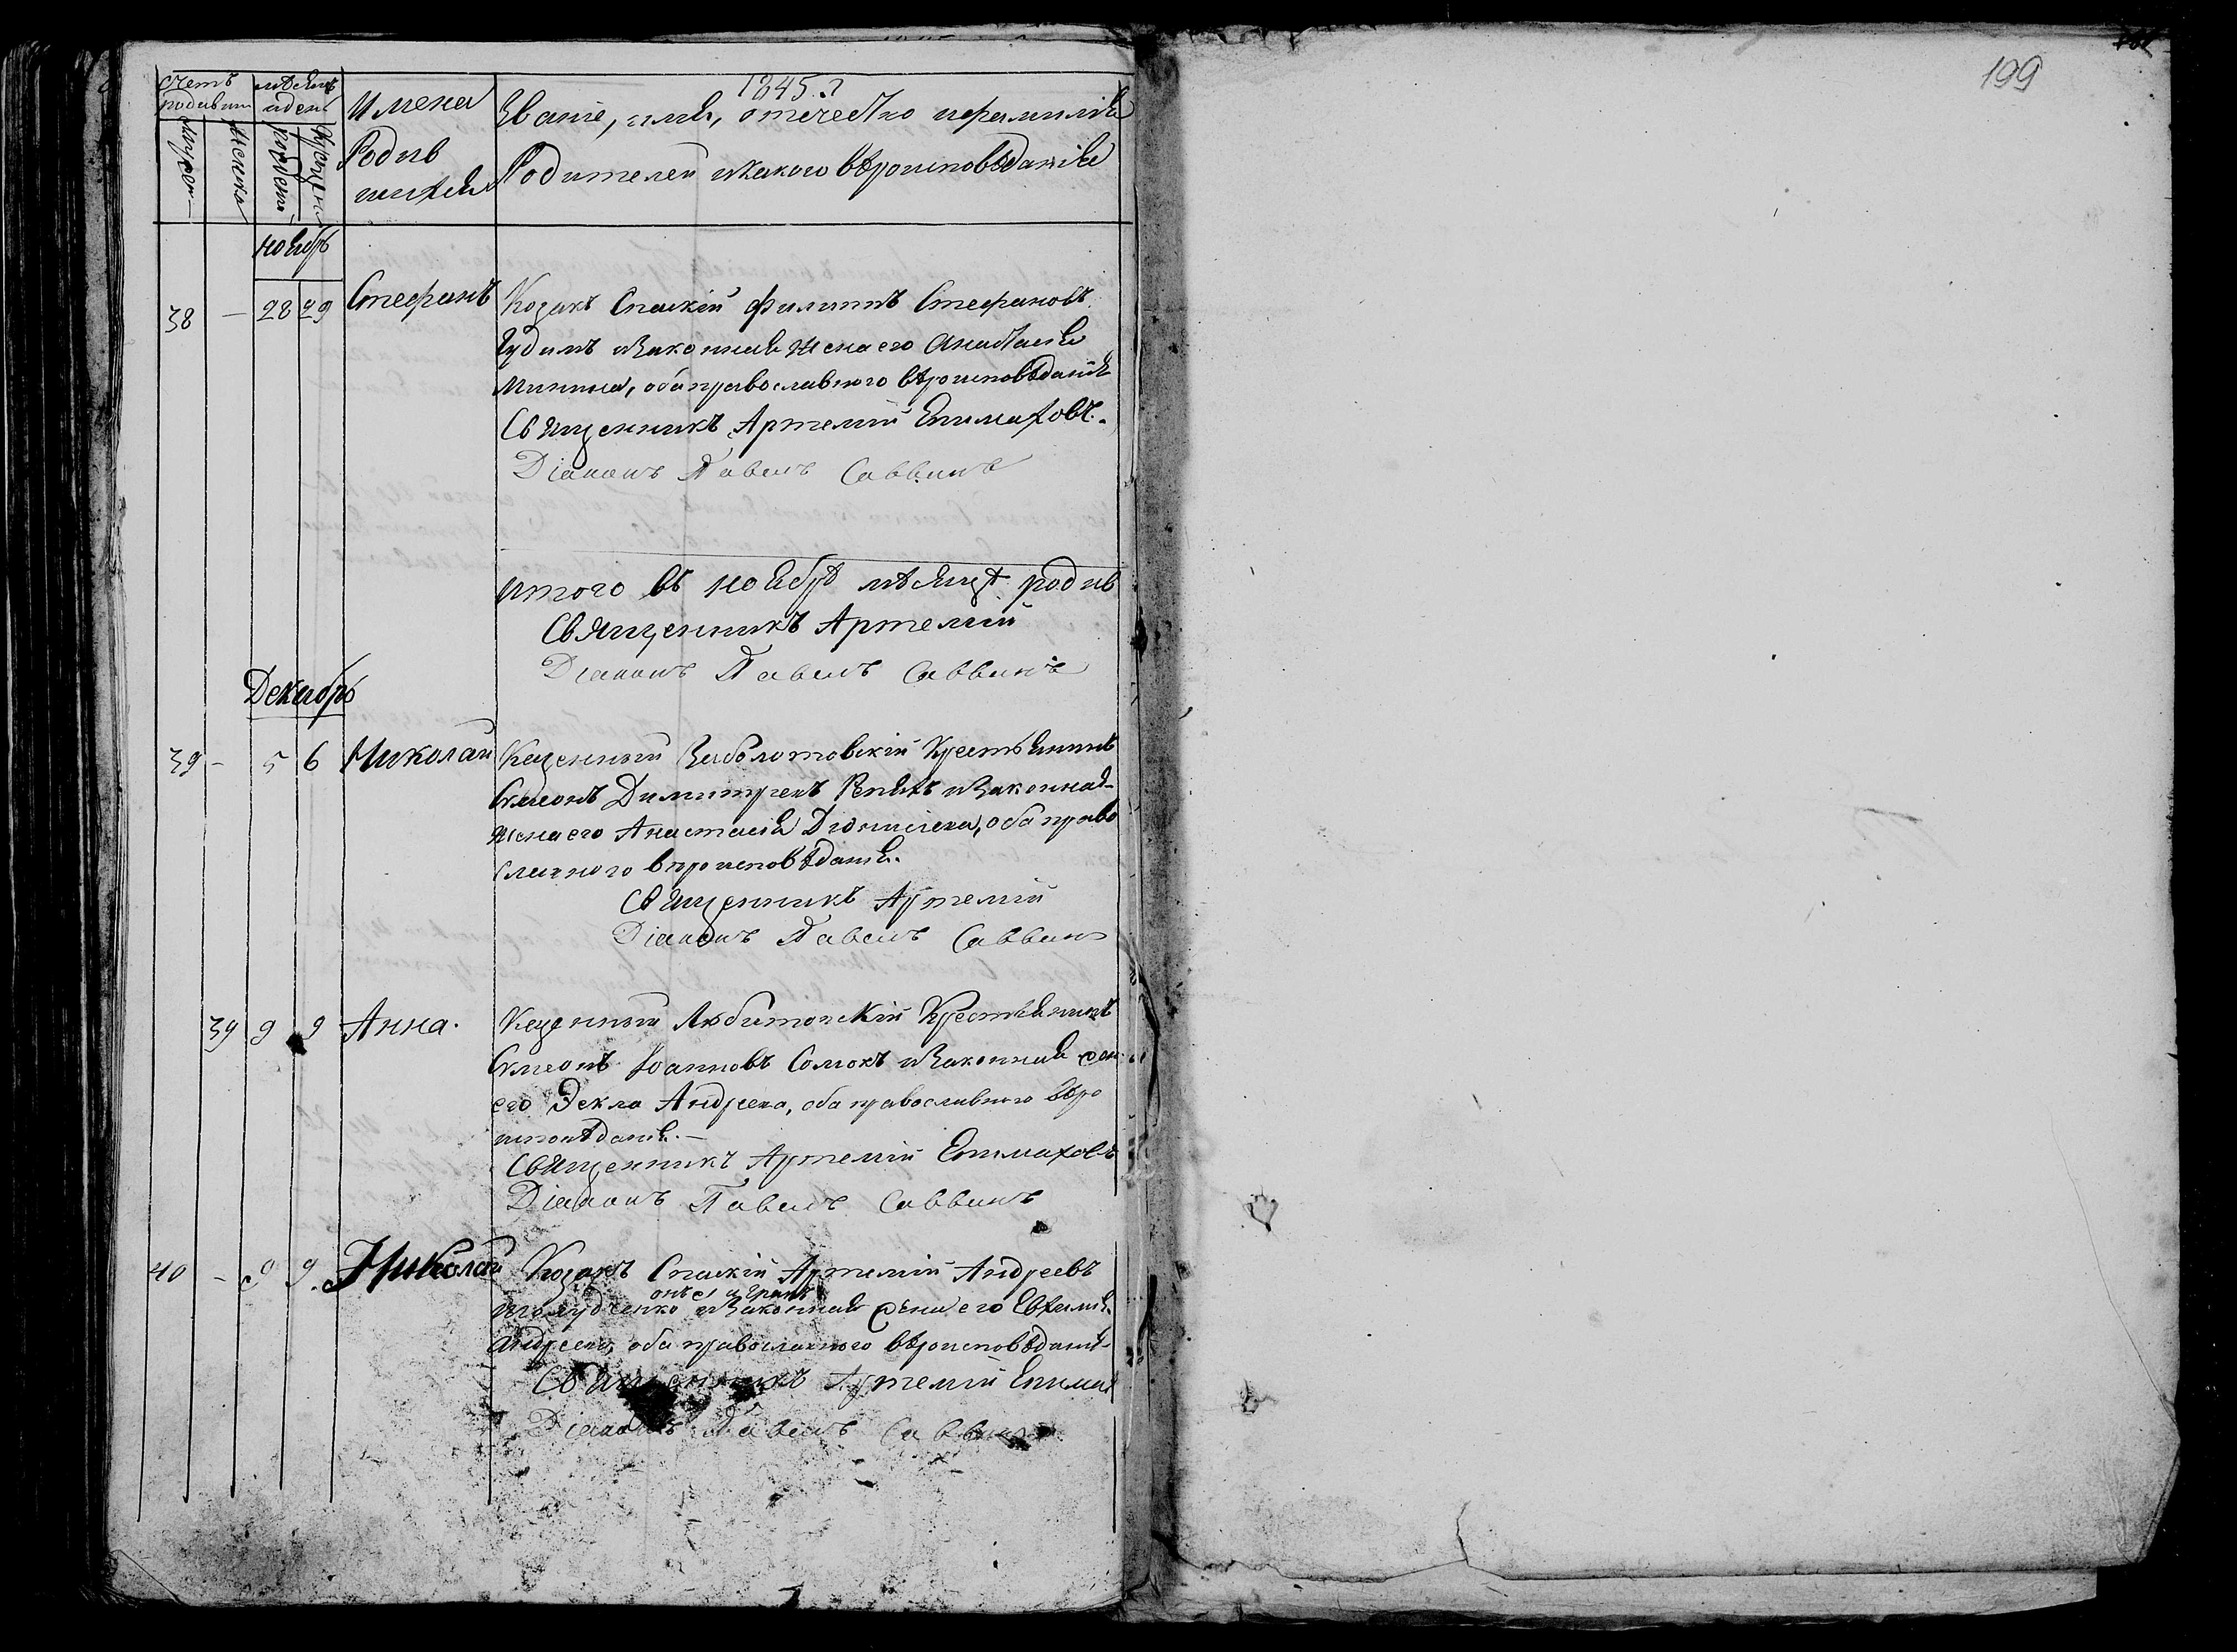 1845. г
Счетъ родивши
мѣсяцъ и день
Имена Родив шихся
Званіе, имя, отечество и фамилія
Родителей и какого вѣроисповѣданія
Мужеск
Женска
Рожденія
Крещенія
Ноябрь
38 — 28 29 Стефанъ Козакъ Спаскій Филиппъ Стефановъ
и законная жена его Анастасія
Минина, оба православнаго вѣроисповѣданія
Священникъ Артемій Епимаховъ.
Діаконъ Павелъ Саввинъ
Итого въ ноябрѣ мѣсяцѣ родив
Священникъ Артемій
Діаконъ Павелъ Саввинъ
Декабрь
39 - 5 6 Николай Казенный Заболотовскій Крестьянинъ
Симеонъ Димитреевъ Репяхъ и законная
жена его Анастасія Дионисіева, оба право
славного вѣроисповѣданія.
Священникъ Артемій
Діаконъ Павелъ Саввинъ
39 9 9 Анна. Казенный Любитовскій Крестьянинъ
Симеонъ Іоанновъ Сомокъ и законная жен
его Фекла Андреева, оба православного вѣро
исповѣданія.—
Священникъ Артемій Епимаховъ
Діаконъ Павелъ Саввинъ
40 - 9 9. Николай Козакъ Спаскій Артемій Андреевъ
и законная жена его Евфимія
Андреева, оба православного вѣроисповѣданія
Священникъ Артемій Епимах
Діаконъ Павелъ Саввинъ
199